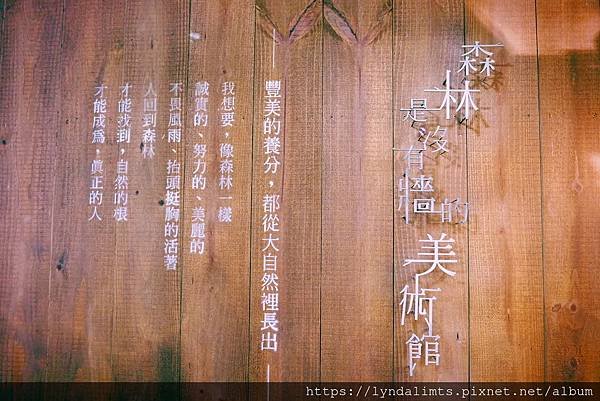 森林
是沒有牆的
美術館
豐美的養分，都從大自然裡長出
我想要，像森林一樣
誠實的、努力的、美麗的
不畏風雨、抬頭挺胸的活著
人回到森林
才能找到，自然的根
才能成為，真正的人
https://lyndalimts.pixnet.net/album